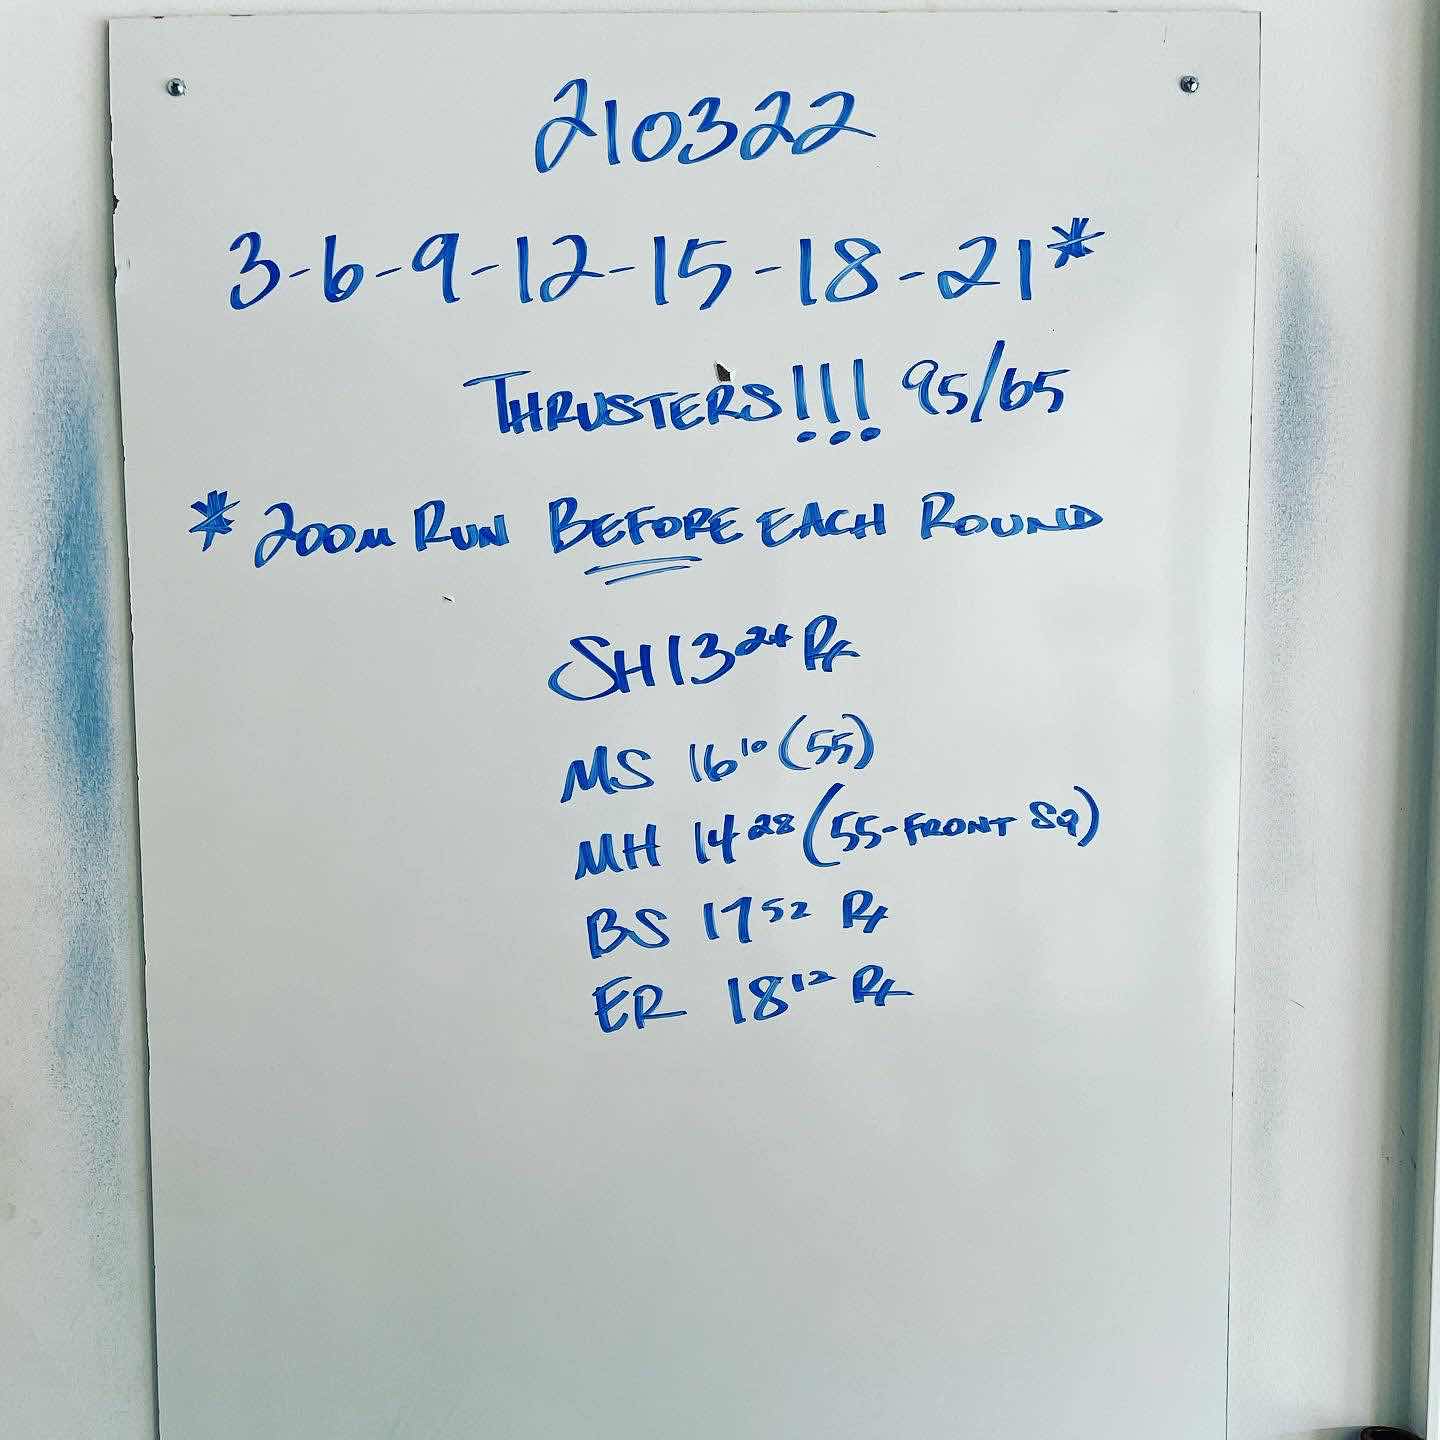 210322
3-6-9-12-15-18-21*
THRUSTERS!!! 95/65
* 200m RUN BEFORE EACH ROUND
SH 13 24 Rx
MS 16 10 (55)
MH 14 28 (55-FRONT SQ)
BS 17 52 Rx
ER 18 12 Rx